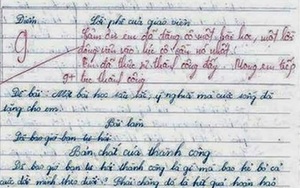 Điểm
Lời phê của giáo viên
9
Cảm ơn em đã tặng cô một bài học, một lời
động viên vào lúc cô cần nó nhất.
Em đã thực sự thành công đấy. Mong em tiếp
9+ tục thành công
Đề bài: Một bài học sâu sắc, ý nghĩa mà cuộc sống đã
tặng cho em.
Bài làm
Đã bao giờ bạn tự hỏi
Bản chất của thành công
Đã bao giờ bạn tự hỏi thành công là gì mà bao kẻ bỏ cả
cuộc đời mình theo đuổi? Phải chăng đó là kết quả hoàn hảo